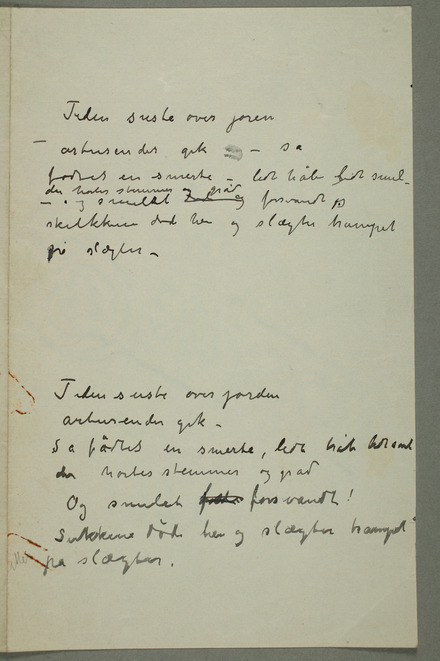 Tiden suste over joren
– artusender gik – sa
fødtes en smerte – ledt håb ledt smul-
der hørtes stemmer og gråd
– . og smuldt forsvandt
skikkene død hen og slægter trampet
på slægter –
Tiden suste over jorden
artusender gik –
Sa fødtes en smerte, ledt håb
der hørtes stemmer og grad
Og smulet forsvandt!
Sukkene døde hen og slægter trampet
pa slægter.